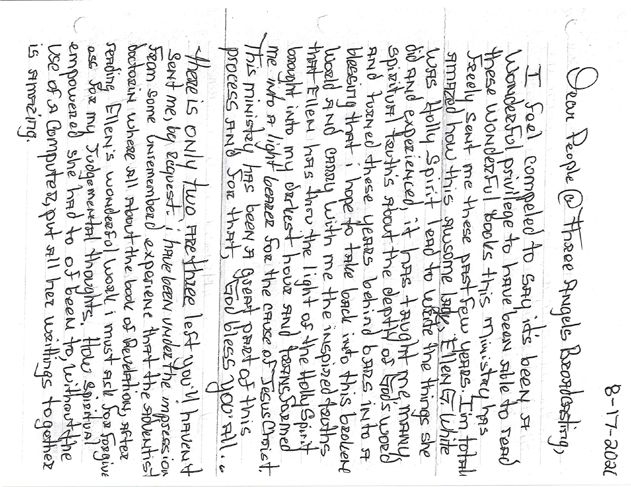 8-17-202
Dear People @ Three Angels Broadcasting,
I feel compeled to say it's been a
wonderful privilege to have been able to read
these wonderful books this ministry has
freely sent me these past few years. I'm totall
amazed how this awsome lady, Ellen G White
was Holly Spirit lead to write the things she
did and experienced, it has taught me many
spiritual truths about the depth of God's word
and turned these years behind bars into a
blessing that i hope to take back into this broken
world and carry with me the inspired truths
that Ellen has thru the light of the Holly Spirit
brought into my darkest hour and transformed
me into a light bearer for the cause of Jesus Christ.
This ministry has been a great part of this
process and for that, God bless you all..
There is only two are three left you'll haven't
sent me, by request. i have been under the impression
from some unremembered experiene that the adventist
doctorin where all about the book of Revelation, after
reading Ellen's wonderful work i must ask for forgive
ass for my judgemental thoughts. How spiritual
empowered she had to of been to, without the
use of a computer, put all her writtings together
is amazing.